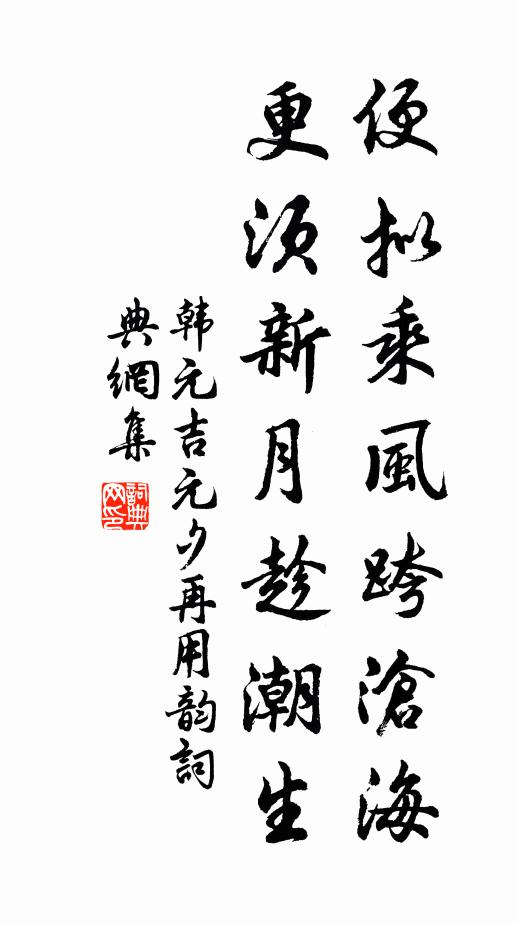 便拟乘風跨滄海
更須新月趁潮生
韩元吉元夕再用韵詞
典網集
詞典网印